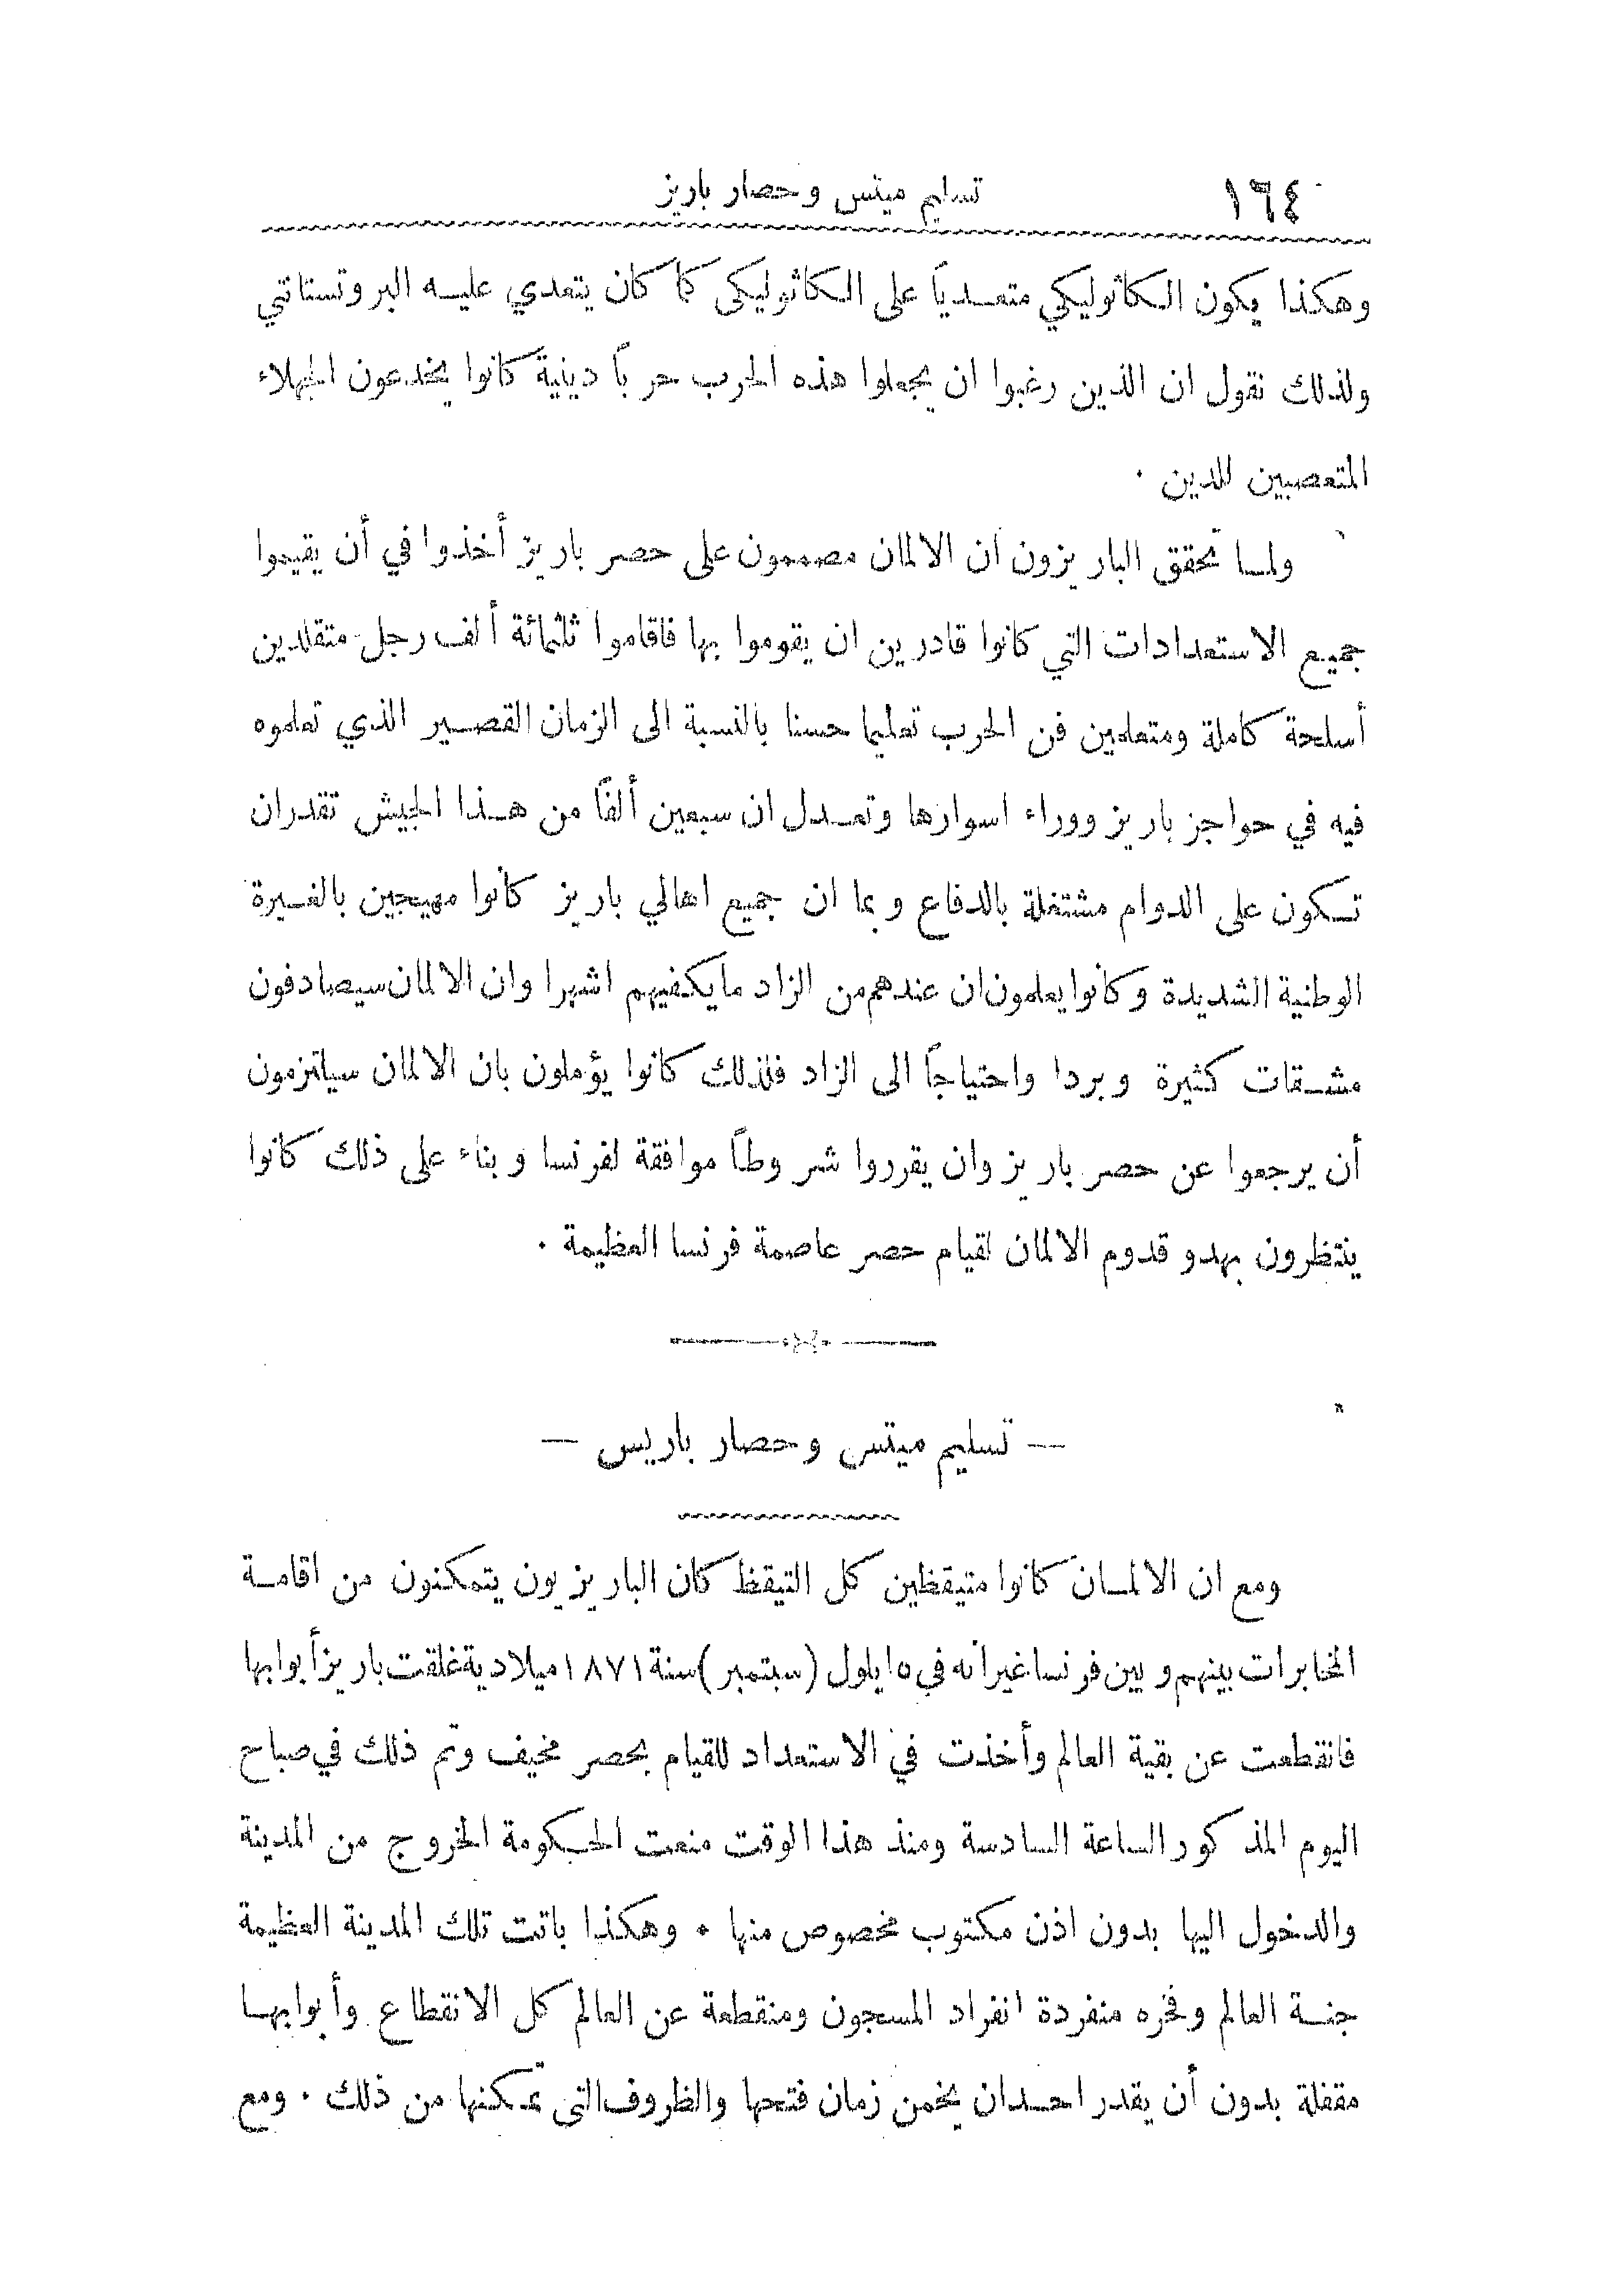 ١٦٤ تسليم ميتس وحصار باريز
وهكذا يكون الكاثوليكي متعدياً على الكاثوليكى كما كان يتعدي عليه البروتستانتي
ولذلك نقول ان الذين رغبوا ان يجعلوا هذه الحرب حرباً دينية كانوا يخدعون الجهلاء
المتعصبين للدين .
ولما تحقق الباريزون ان الالمان مصممون على حصر باريز أخذوا في أن يقيموا
جميع الاستعدادات التي كانوا قادرين ان يقوموا بها فاقاموا ثلثمائة ألف رجل متقلدين
أسلحة كاملة ومتعلمين فن الحرب تعليما حسنا بالنسبة الى الزمان القصير الذي تعلموه
فيه في حواجز باريز ووراء اسوارها وتعدل ان سبعين ألفاً من هذا الجيش تقدران
تكون على الدوام مشتغلة بالدفاع وبما ان جميع اهالي باريز كانوا مهيجين بالغيرة
الوطنية الشديدة وكانوا يعلمون ان عندهم من الزاد ما يكفيهم اشهرا وان الالمان سيصادفون
مشقات كثيرة وبردا واحتياجاً الى الزاد فلذلك كانوا يؤملون بان الالمان سيلتزمون
أن يرجعوا عن حصر باريز وان يقرروا شروطاً موافقة لفرنسا وبناء على ذلك كانوا
ينتظرون بهدو قدوم الالمان لقيام حصر عاصمة فرنسا العظيمة .
— تسليم ميتس وحصار باريس —
ومع ان الالمان كانوا متيقظين كل التيقظ كان الباريزيون يتمكنون من اقامة
المخابرات بينهم وبين فرنسا غير انه في ١٥ ايلول (سبتمبر) سنة ١٨٧١ ميلادية غلقت باريز أبوابها
فانقطعت عن بقية العالم وأخذت في الاستعداد للقيام بحصر مخيف وتم ذلك في صباح
اليوم المذكور الساعة السادسة ومنذ هذا الوقت منعت الحكومة الخروج من المدينة
والدخول اليها بدون اذن مكتوب مخصوص منها . وهكذا باتت تلك المدينة العظيمة
جنة العالم وفخره منفردة انفراد المسجون ومنقطعة عن العالم كل الانقطاع وأبوابها
مقفلة بدون أن يقدر احد ان يخمن زمان فتحها والظروف التى تمكنها من ذلك . ومع